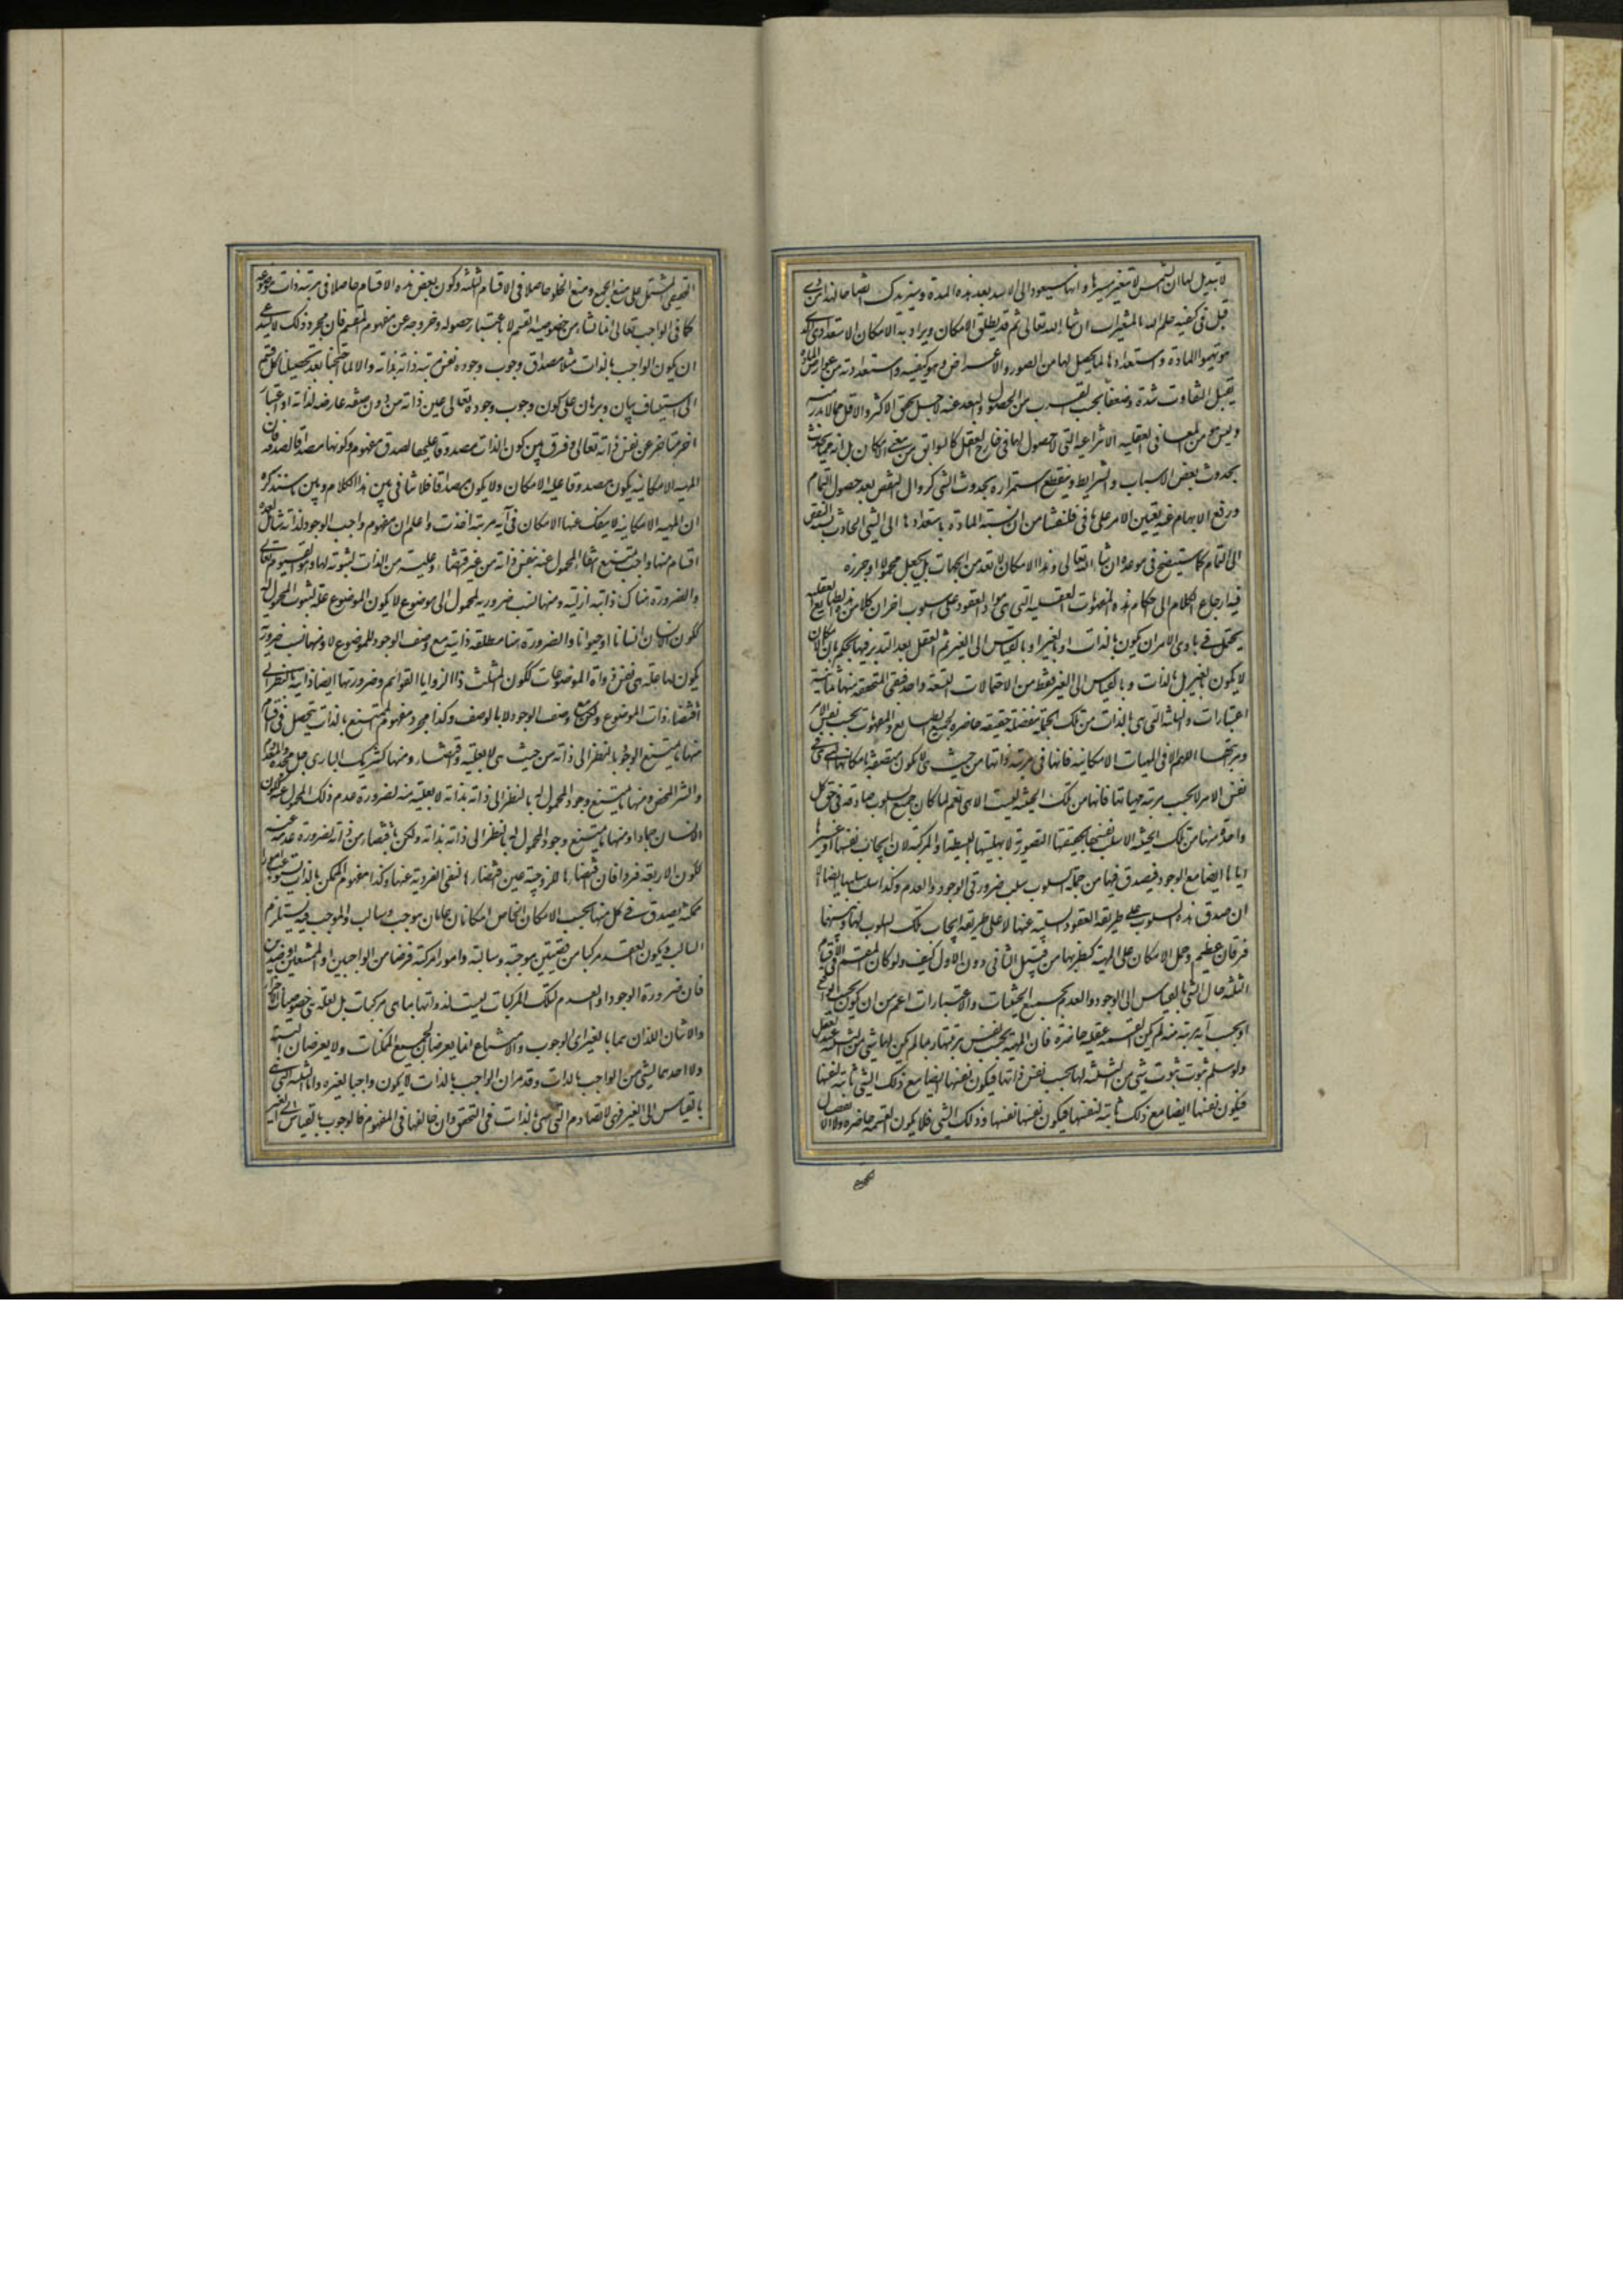 لا تبديل لها ان الشمس لا تتغير سيرها وانها سيعود الى الابد بعد هذه المدة وسنزيدك ايضاحا لهذا من ذي
قبل في كيفية علم الله بالمتغيرات ان شاء الله تعالى ثم قد يطلق الامكان ويراد به الامكان الاستعدادي الذي
هو تهيؤ المادة واستعدادها لما يحصل لها من الصور والاعراض وهو كيفية استعدادية من عوارض المادة
يقبل التفاوت شدة وضعفا بحسب القرب من الحصول والبعد عنه لاجل تحقق الاكثر والاقل مما لا بد منه
وليس من المعاني العقلية الانتزاعية التي لا حصول لها في خارج العقل كالسوابق من معنى الامكان بل انه مما يحدث
بحدوث بعض الاسباب والشرايط وينقطع استمراره بحدوث الشيء كزوال النقص بعد حصول التمام
ورفع الابهام عند تعين الامر على ما في فلسفتنا من ان نسبة المادة باستعدادها الى الشيء الحادث نسبة النقص
الى التمام كما سيتضح في موعده ان شاء الله تعالى وهذا الامكان لا يعد من الجهات بل يجعل محمولا او جزءه
فيه ارجاع الكلام الى احكام هذه المفهومات العقلية التي هي مواد العقود على اسلوب اخر ان كلا من هذه الطبايع العقلية
يحتمل في بادي الامر ان يكون بالذات او بالغير او بالقياس الى الغير ثم العقل بعد التدبر فيها يحكم بان الامكان
لا يكون بالغير بل بالذات وبالقياس الى الغير فقط من الاحتمالات التسعة واحد فبقي المتحققة منها ثمانية
اعتبارات والثلثة التي هي بالذات من تلك الجملة منفصلة حقيقية حاصرة لجميع الطبايع والمفهومات بحسب نفس الامر
ومرتبتها اللهم الا في المهيات الامكانية فانها في مرتبة ذواتها من حيث هي لا يكون متصفة بامكانها الا في
نفس الامر لا بحسب مرتبة مهياتها فانها من تلك الحيثية ليست الا هي نعم لما كان جميع السلوب صادقة في حق كل
واحدة منها من تلك الحيثية الا سلب نفسها بحقيقتها التصورية لا بهليتها البسيطة او المركبة لان ايجاب نفسها او غيرها
اياها ايضا مع الوجود فيصدق فيها من جملة السلوب سلب ضرورتي الوجود والعدم وكذا سلب سلبها ايضا الا
ان صدق هذه السلوب على طريقة العقود السلبية عنها لا على طريقة ايجاب تلك السلوب لها وبينهما
فرقان عظيم وحمل الامكان على المهية كنظيريها من قبيل الثاني دون الاول كيف ولو كان المقسم في الاقسام
الثلثة حال الشيء بالقياس الى الوجود والعدم بجميع الحيثيات والاعتبارات اعم من ان يكون بحسب الواقع
او بحسب آية مرتبة منه لم يكن القسمة عقلية حاصرة فان المهية بحسب نفس مرتبتها ربما لم يكن لها شيء من الثلثة عند العقل
ولو سلم ثبوت شيء من الثلثة لها بحسب نفس ذاتها فيكون نفسها ايضا مع ذلك الشيء ثابتة لنفسها
فيكون نفسها ايضا مع ذلك ثابتة لنفسها فيكون نفسها نفسها وذلك الشيء فلا يكون القسمة حاصرة ولا الانفصال
الحقيقي المشتمل على منع الجمع ومنع الخلو حاصلا في الاقسام الثلثة وكون بعض هذه الاقسام حاصلا في مرتبة ذات موضوعه
كما في الواجب تعالى انما نشأ من خصوصية القسم لا باعتبار حصوله وخروجه عن مفهوم المقسم فان مجرد ذلك لا يستدعي
ان يكون الواجب بالذات مثلا مصداق وجوب وجوده نفس مرتبة ذاته بذاته والا لما احتجنا بعد تحصيل كل قسم
الى استيناف بيان وبرهان على كون وجوب وجوده تعالى عين ذاته من دون صفة عارضة لذاته او اعتبار
اخر متاخر عن نفس ذاته تعالى وفرق بين كون الذات مصدوقا عليها لصدق مفهوم وكونها مصداقا لصدقه فان
المهية الامكانية يكون مصدوقا عليها الامكان ولا يكون مصداقا فلا تنافي بين هذا الكلام وبين ما سنذكره
ان المهية الامكانية لا ينفك عنها الامكان في آية مرتبة اخذت واعلم ان مفهوم واجب الوجود لذاته شامل لعدة
اقسام منها واجب يمتنع انتفاء المحمول عنه بنفس ذاته من غير اقتضاء وعلية من الذات لثبوته لها وهو القيوم تعالى
والضرورة هناك ذاتية ازلية ومنها نسب ضرورية لمحمول الى موضوع لا يكون الموضوع علة لثبوت المحمول له
ككون الانسان انسانا او حيوانا والضرورة هنا مطلقة ذاتية مع وصف الوجود للموضوع لا به ومنها نسب ضرورية
يكون لها علة هي نفس ذوات الموضوعات ككون المثلث ذا الزوايا القوائم وضرورتها ايضا ذاتية بالنظر الى
اقتضاء ذات الموضوع ولكن مع وصف الوجود لا بالوصف وكذا مجرد مفهوم الممتنع بالذات يتحصل في اقسام
منها ما يمتنع الوجود بالنظر الى ذاته من حيث هي لا بعلية واقتضاء ومنها كشريك الباري جل مجده والمعدوم
والشر المحض ومنها ما يمتنع وجود المحمول له بالنظر الى ذاته بذاته لا بعلية منه لضرورة عدم ذلك المحمول عنه ككون
الانسان جمادا ومنها ما يمتنع وجود المحمول له بالنظر الى ذاته بذاته ولكن باقتضاء من ذاته لضرورة عدمه عنه
ككون الاربعة فردا فان اقتضاءها للزوجية عين اقتضاءها لنفي الفردية عنها وكذا مفهوم الممكن بالذات يستوعب امورا
ممكنة يصدق في كل منها بحسب الامكان الخاص امكانان عامان موجب وسالب والموجب فيه يستلزم
السالب ويكون العقد مركبا من قضيتين موجبة وسالبة وامورا مركبة فرضا من الواجبين او الممتنعين او ضدين
فان ضرورة الوجود او العدم لتلك المركبات ليست لذواتها بما هي مركبات بل لعلة هي خصوصيات الاجزاء
والاثنان اللذان هما بالغير اي الوجوب والامتناع انما يعرضان لجميع الممكنات ولا يعرضان البتة
ولا احدهما لشيء من الواجب بالذات وقد مر ان الواجب بالذات لا يكون واجبا لغيره واما الثلثة التي هي
بالقياس الى الغير فهي لا تصادم التي هي بالذات في التحقق وان خالفها في المفهوم فالوجوب بالقياس الى الغير